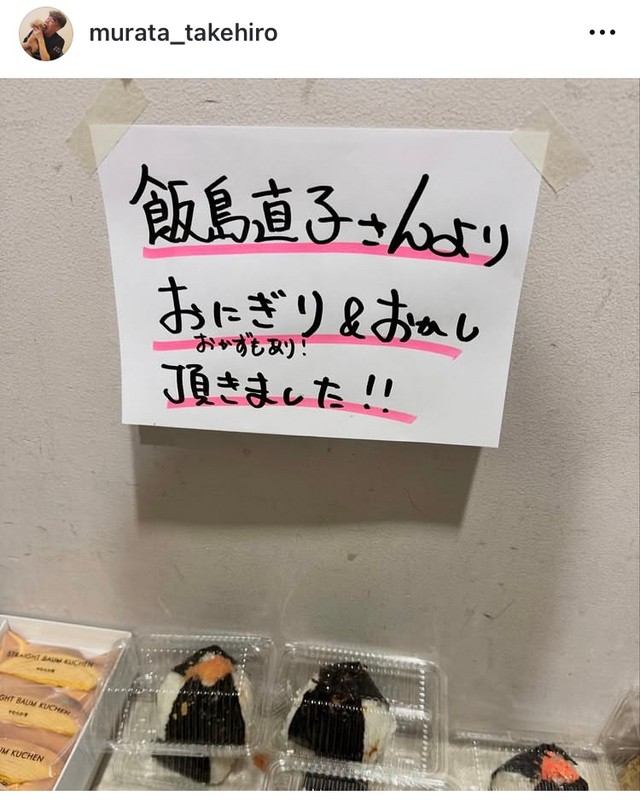 murata_takehiro
飯島直子さんより
おにぎり&おかし
おかずもあり!
頂きました!!
STRAIGHT BAUM KUCHEN
GHT BAUM KUCHEN
UM KUCHEN